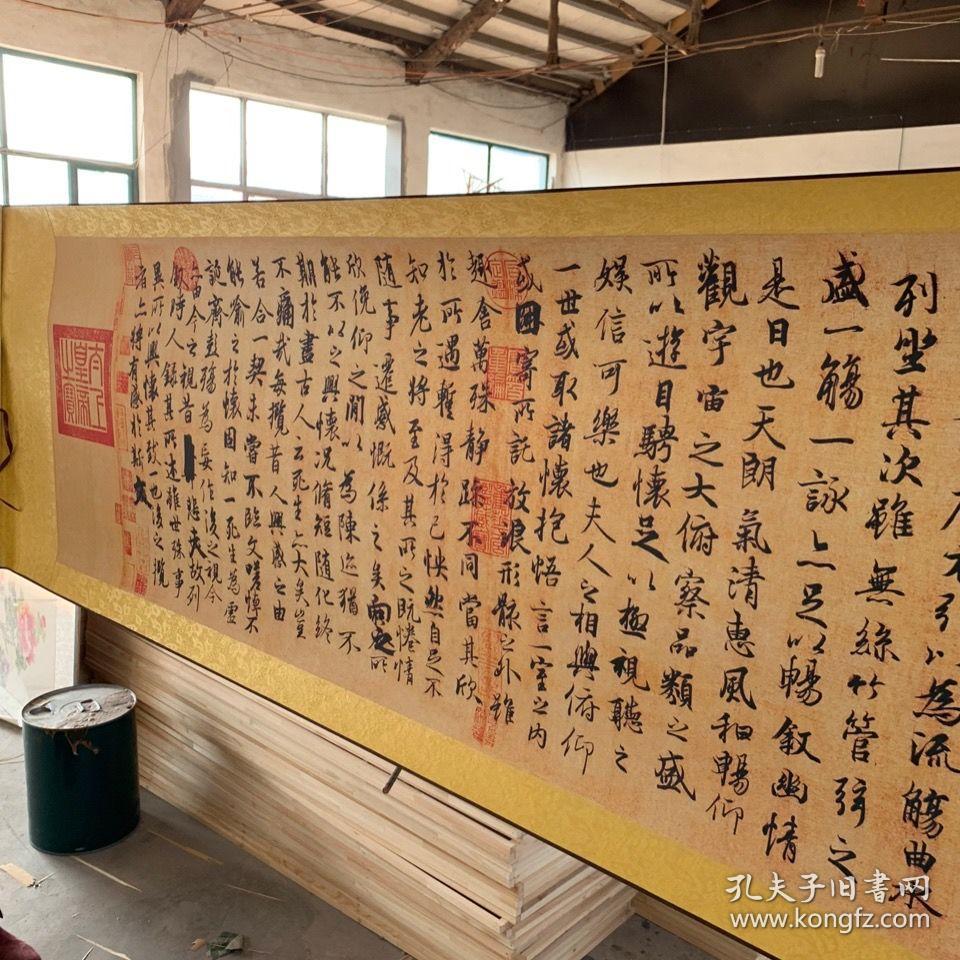 引以為流觴曲水
列坐其次雖無絲竹管弦之
盛一觴一詠亦足以暢敘幽情
是日也天朗氣清惠風和暢仰
觀宇宙之大俯察品類之盛
所以遊目騁懷足以極視聽之
娛信可樂也夫人之相與俯仰
一世或取諸懷抱悟言一室之內
或因寄所託放浪形骸之外雖
趣舍萬殊靜躁不同當其欣
於所遇暫得於己怏然自足不
知老之將至及其所之既惓情
隨事遷感慨係之矣向之所
欣俛仰之閒以為陳迹猶不
能不以之興懷況脩短隨化終
期於盡古人云死生亦大矣豈
不痛哉每攬昔人興感之由
若合一契未嘗不臨文嗟悼不
能喻之於懷固知一死生為虛
誕齊彭殤為妄作後之視今
亦由今之視昔悲夫故列
敘時人錄其所述雖世殊事
異所以興懷其致一也後之攬
者亦將有感於斯文
太上
皇帝
之寶
孔夫子旧書网
www.kongfz.com